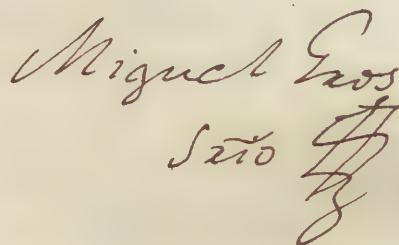 Miguel Eros
Saío